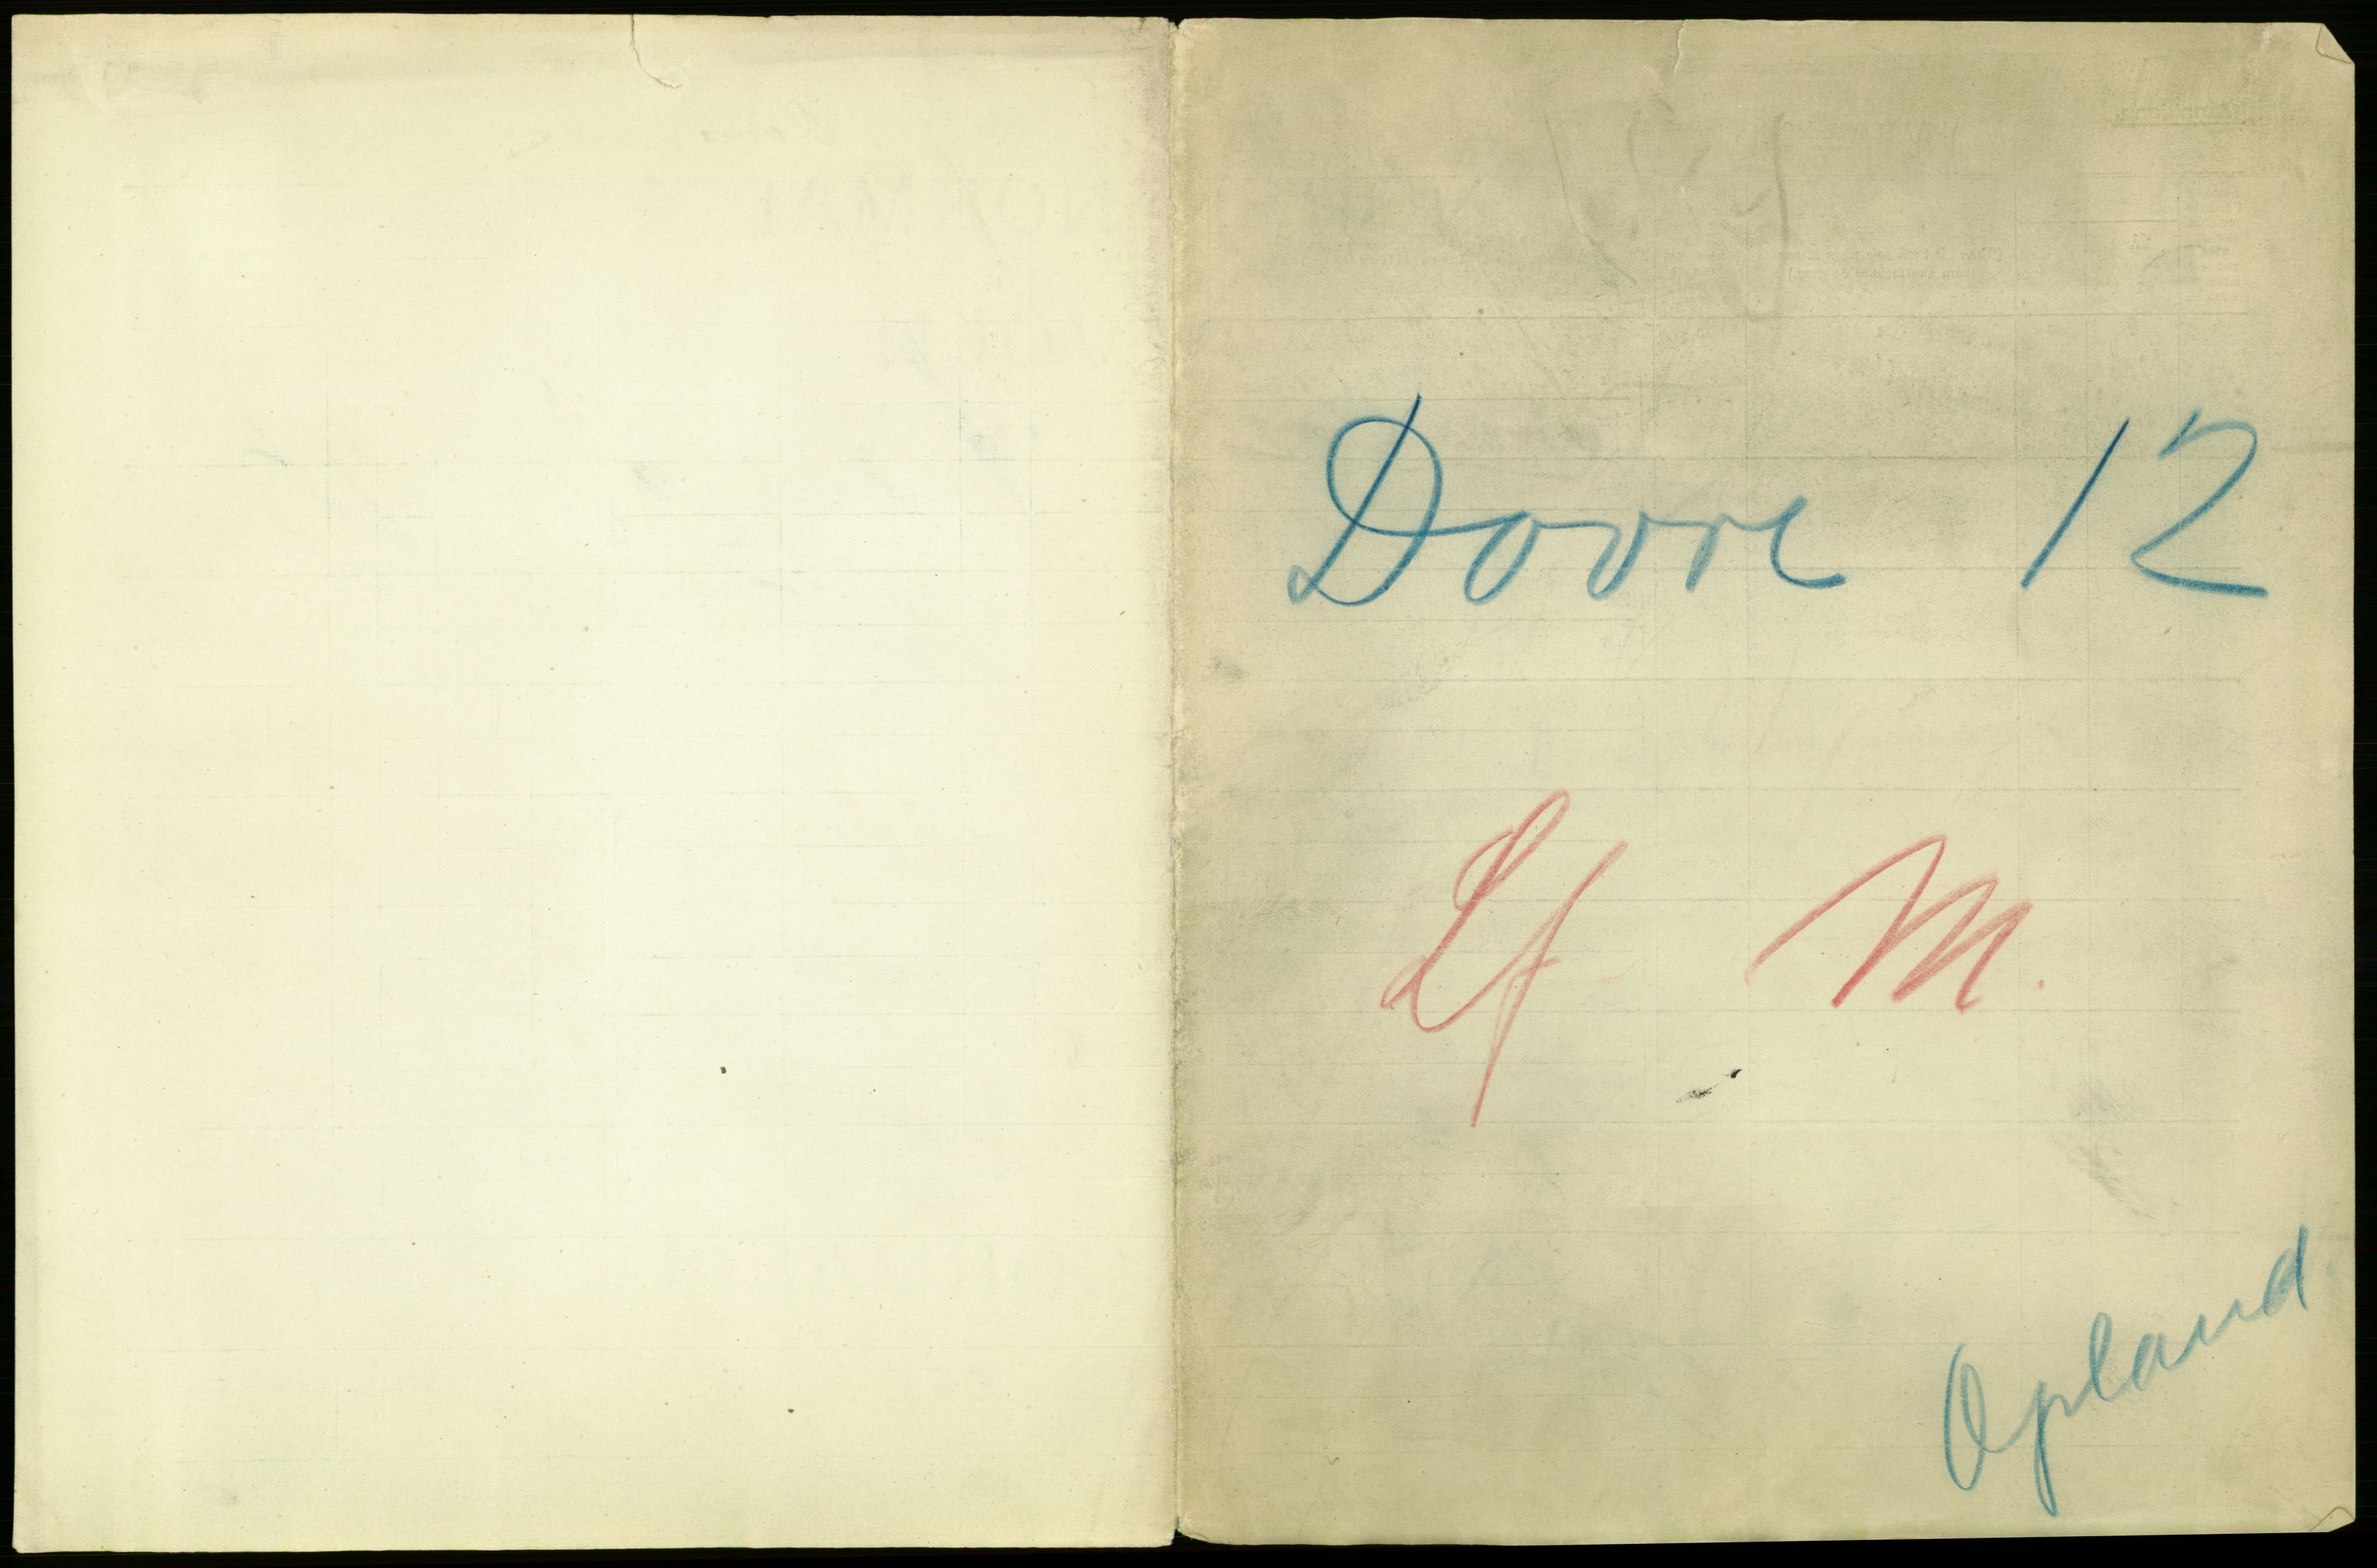 Dovre 12
Lf M.
Opland